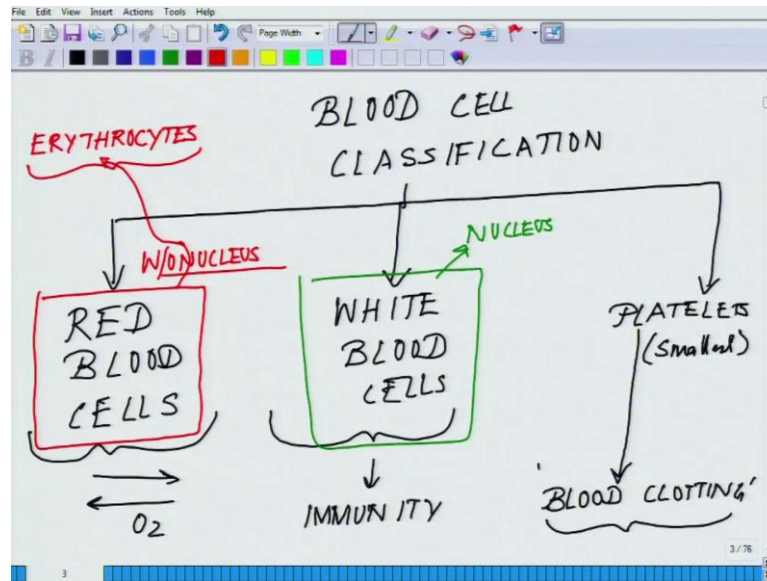 File Edit View Insert Actions Tools Help
Page Width
B I
BLOOD CELL
CLASSIFICATION
ERYTHROCYTES
W/O NUCLEUS
NUCLEUS
RED
BLOOD
CELLS
WHITE
BLOOD
CELLS
PLATELETS
(Smallest)
O2
IMMUNITY
'BLOOD CLOTTING'
3/76
3